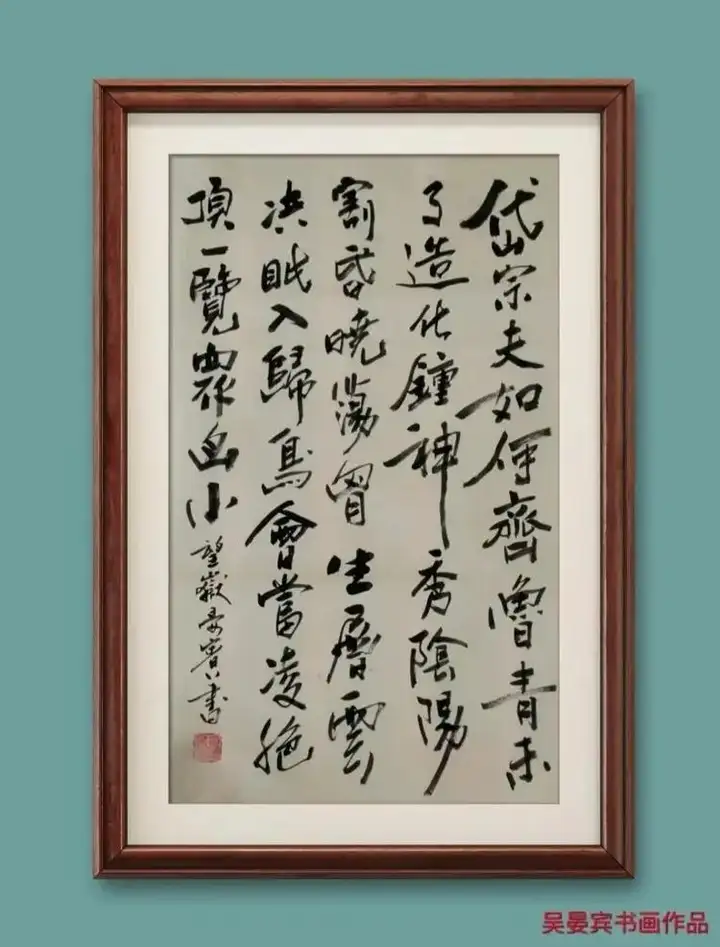 岱宗夫如何齊魯青未
了造化鍾神秀陰陽
割昏曉蕩胷生層雲
决眦入歸鳥會當凌絶
頂一覽眾山小
望嶽晏賓書
吴晏宾书画作品